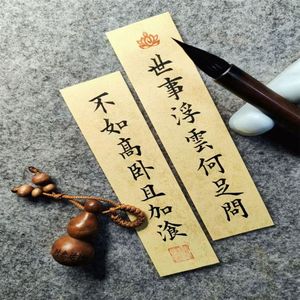 世事浮雲何足問
不如高卧且加飡